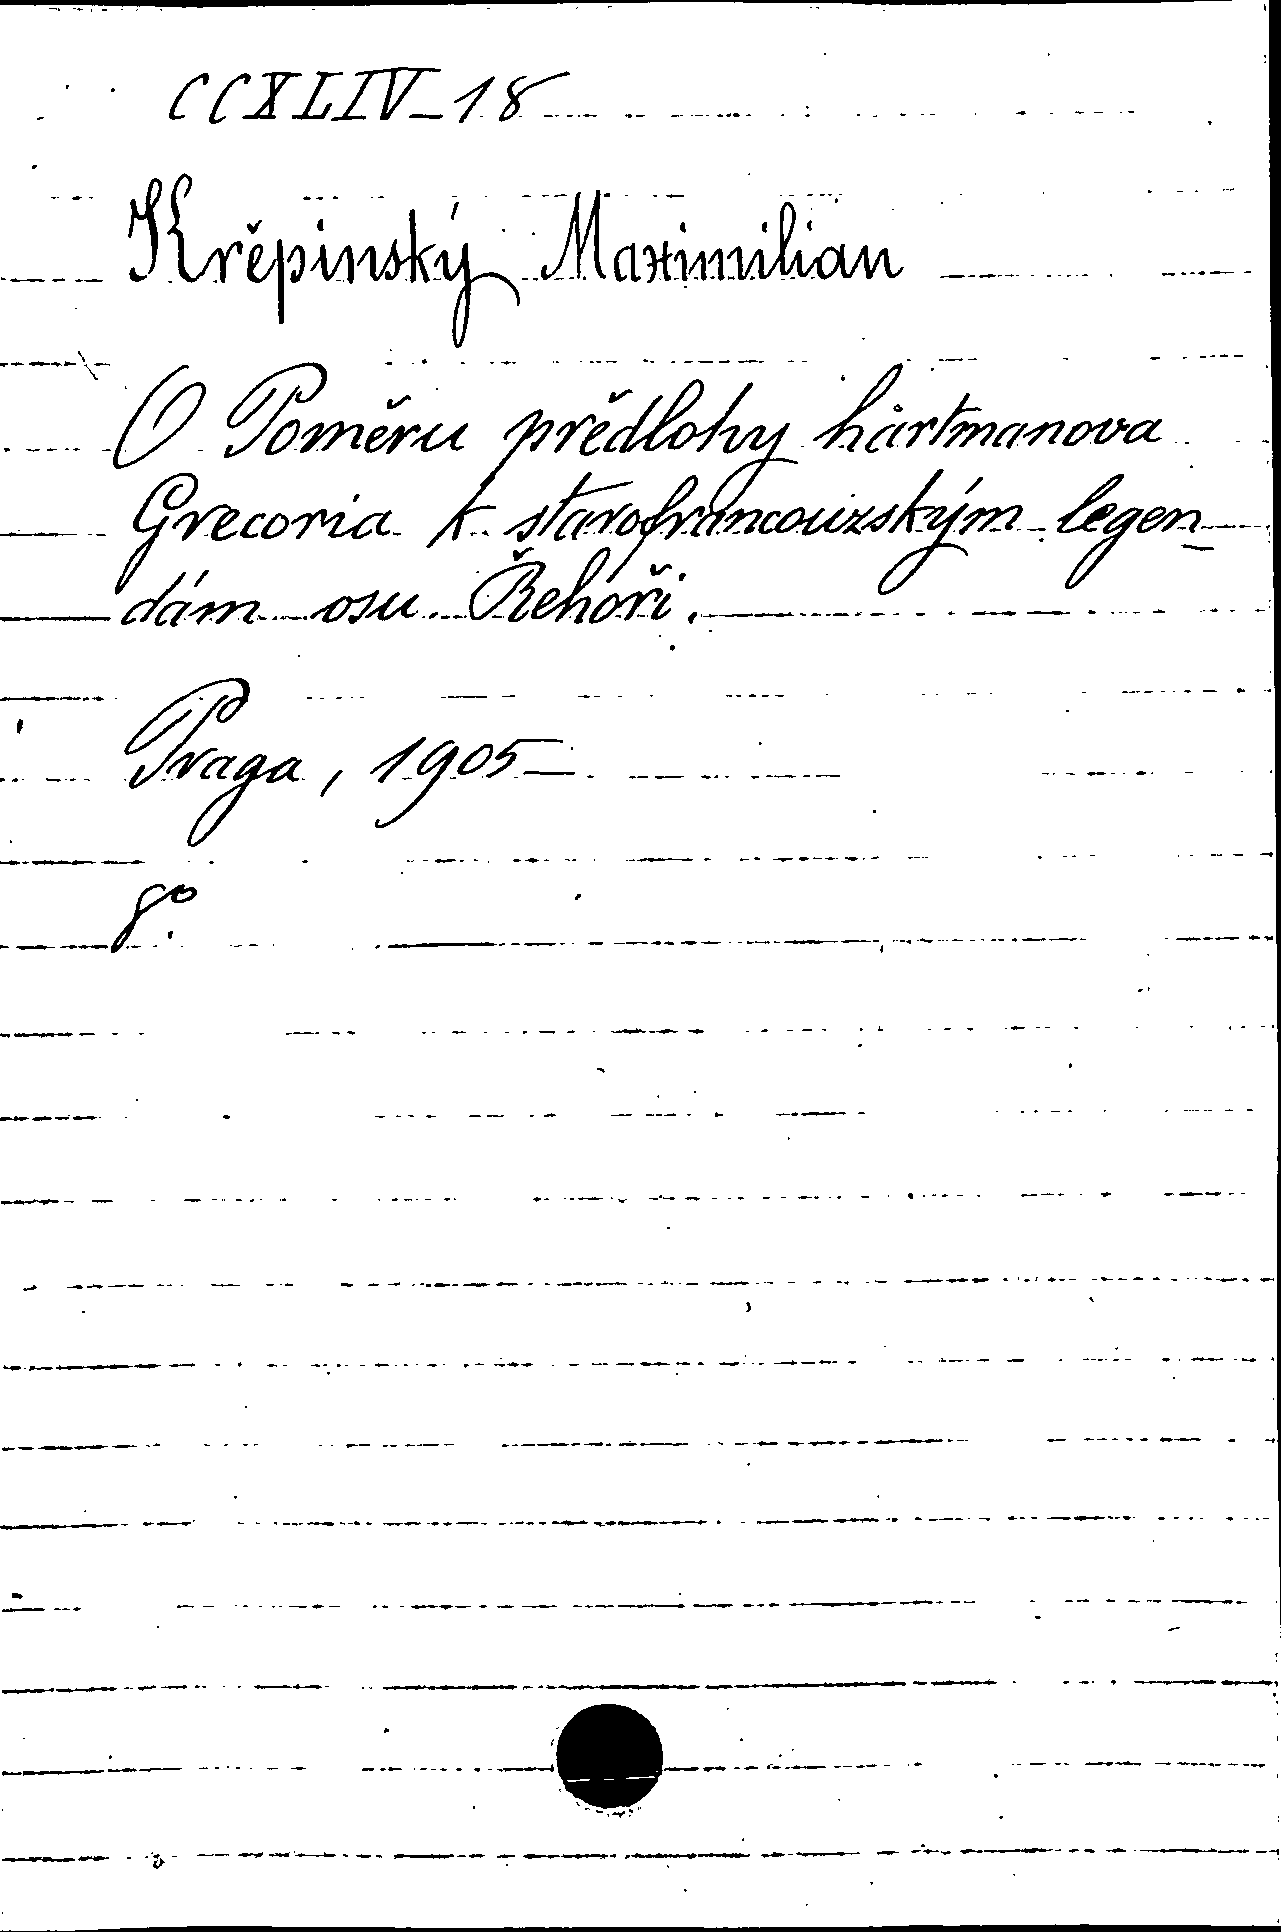 CCXLIV-18
Krěpinský Maximilian
O Poměru prědlohy hartmanova
Grecoria k starofrancouzským legen-
dám osu Řehoři.
Praga, 1905
8º.